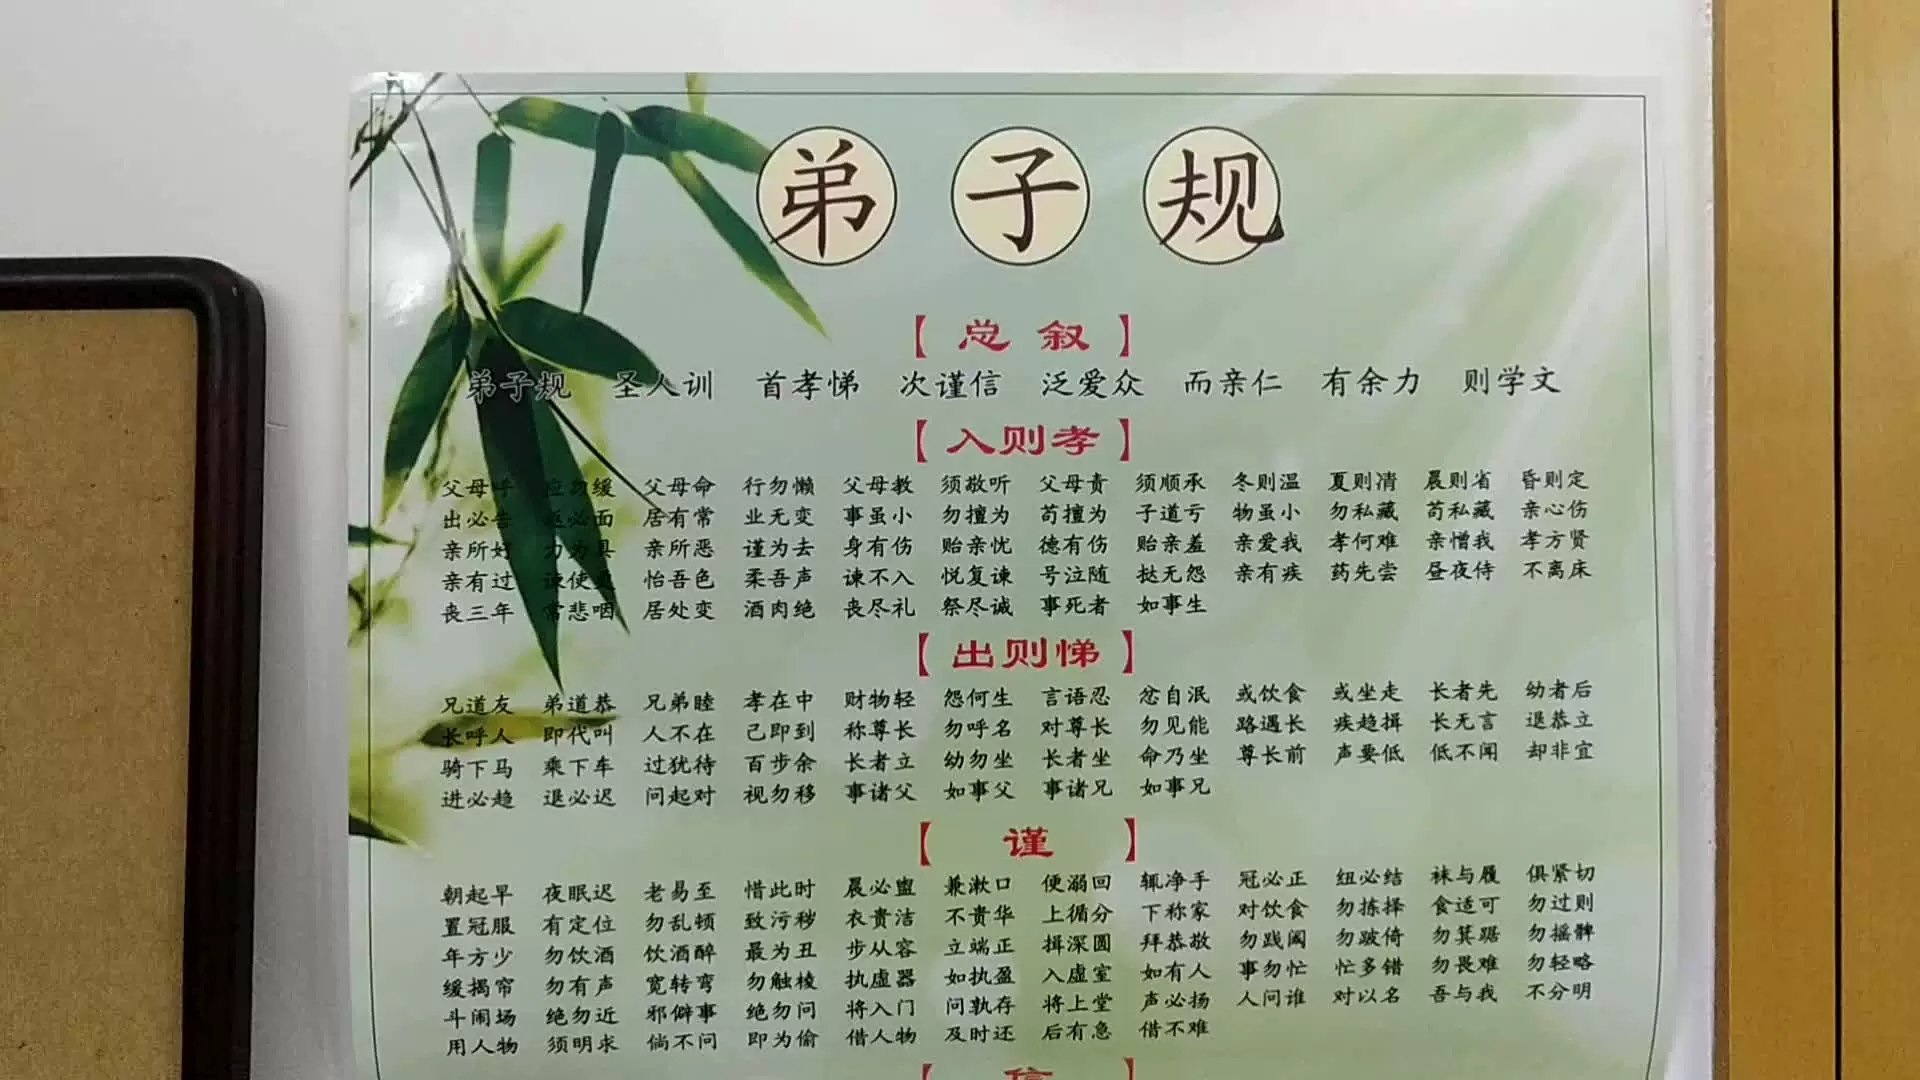 弟子规
【总叙】
弟子规 圣人训 首孝悌 次谨信 泛爱众 而亲仁 有余力 则学文
【入则孝】
父母呼 应勿缓 父母命 行勿懒 父母教 须敬听 父母责 须顺承 冬则温 夏则凊 晨则省 昏则定
出必告 返必面 居有常 业无变 事虽小 勿擅为 苟擅为 子道亏 物虽小 勿私藏 苟私藏 亲心伤
亲所好 力为具 亲所恶 谨为去 身有伤 贻亲忧 德有伤 贻亲羞 亲爱我 孝何难 亲憎我 孝方贤
亲有过 谏使更 怡吾色 柔吾声 谏不入 悦复谏 号泣随 挞无怨 亲有疾 药先尝 昼夜侍 不离床
丧三年 常悲咽 居处变 酒肉绝 丧尽礼 祭尽诚 事死者 如事生
【出则悌】
兄道友 弟道恭 兄弟睦 孝在中 财物轻 怨何生 言语忍 忿自泯 或饮食 或坐走 长者先 幼者后
长呼人 即代叫 人不在 己即到 称尊长 勿呼名 对尊长 勿见能 路遇长 疾趋揖 长无言 退恭立
骑下马 乘下车 过犹待 百步余 长者立 幼勿坐 长者坐 命乃坐 尊长前 声要低 低不闻 却非宜
进必趋 退必迟 问起对 视勿移 事诸父 如事父 事诸兄 如事兄
【谨】
朝起早 夜眠迟 老易至 惜此时 晨必盥 兼漱口 便溺回 辄净手 冠必正 纽必结 袜与履 俱紧切
置冠服 有定位 勿乱顿 致污秽 衣贵洁 不贵华 上循分 下称家 对饮食 勿拣择 食适可 勿过则
年方少 勿饮酒 饮酒醉 最为丑 步从容 立端正 揖深圆 拜恭敬 勿践阈 勿跛倚 勿箕踞 勿摇髀
缓揭帘 勿有声 宽转弯 勿触棱 执虚器 如执盈 入虚室 如有人 事勿忙 忙多错 勿畏难 勿轻略
斗闹场 绝勿近 邪僻事 绝勿问 将入门 问孰存 将上堂 声必扬 人问谁 对以名 吾与我 不分明
用人物 须明求 倘不问 即为偷 借人物 及时还 后有急 借不难
【信】